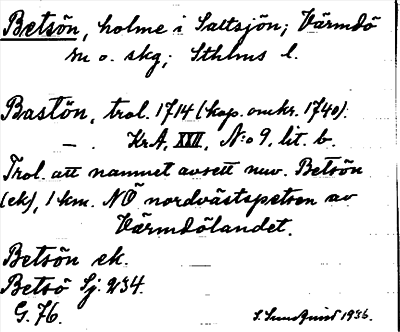 Betsön, holme i Saltsjön; Värmdö
sn o. skg; Sthlms l.
Bastön, trol. 1714 (kop. omkr. 1740).
— . KrA, XXII, N:o 9, lit. b.
Trol. att namnet avsett nuv. Betsön
(ek), 1 km. NÖ nordvästspetsen av
Värmdölandet.
Betsön ek.
Betsö Sj. 234.
G. 76.
S. Sundquist 1936.